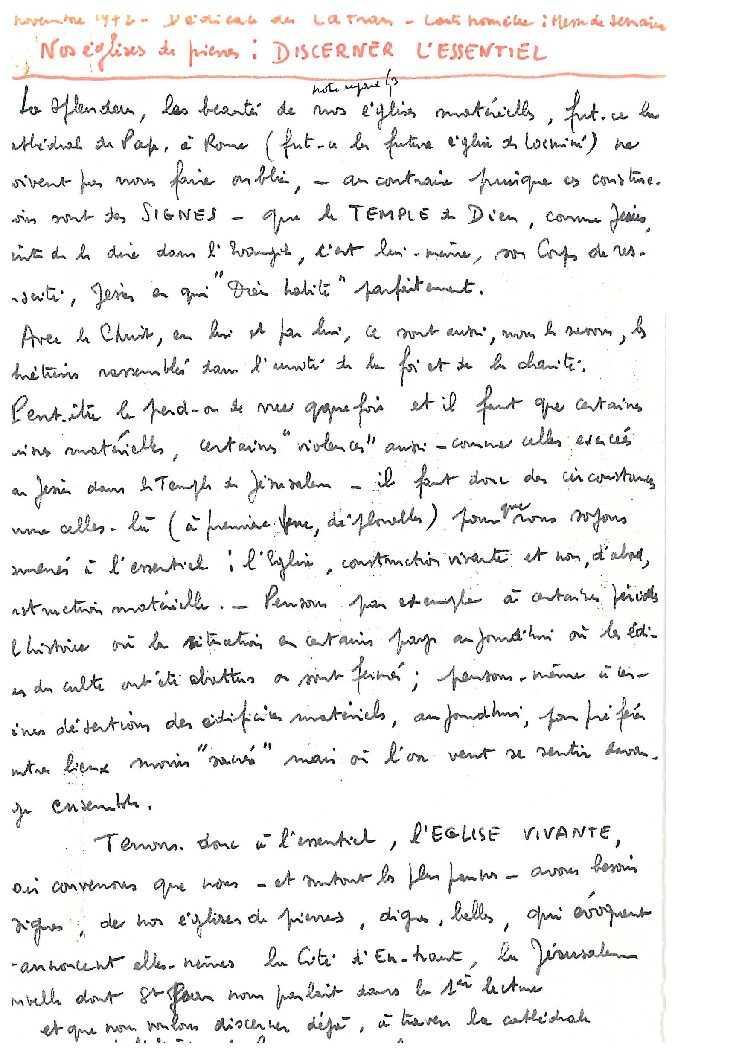 novembre 1972 - Dédicace du LATRAN - courte homélie : Messe de semaine
Nos églises de pierres : DISCERNER L'ESSENTIEL
notre regard
La splendeur, les beautés de nos églises matérielles, fut-ce la
cathédrale du Pape, à Rome (fut-ce la future église de Locminé) ne
doivent pas nous faire oublier, - au contraire puisque ces construc-
ions sont des SIGNES - que le TEMPLE de Dieu, comme Jésus,
de le dire dans l'Evangile, c'est lui-même, son Corps de res-
suscité, Jésus en qui "Dieu habite" parfaitement.
Avec le Christ, en lui et par lui, ce sont aussi, nous le savons, les
hrétiens rassemblés dans l'unité de la foi et de la charité.
Peut-être le perd-on de vue qqne fois et il faut que certaines
uines matérielles, certaines "violences" aussi - comme celles exercées
ar Jésus dans le Temple de Jérusalem - il faut donc des circonstances
mme celles-là (à première vue, déplorables) pour que nous soyons
amenés à l'essentiel : l'Eglise, construction vivante et non, d'abord,
nstruction matérielle. - Pensons par exemple à certaines périodes
l'histoire où la situation en certains pays aujourd'hui où les édi-
es du culte ont été abattus ou sont fermés ; pensons-même à cer-
ines désertions des édifices matériels, aujourd'hui, pour préférer
utres lieux moins "sacrés" mais où l'on veut se sentir davan-
ge ensemble.
Tenons donc à l'essentiel, l'EGLISE VIVANTE,
convenons que nous - et surtout les plus pauvres - avons besoin
signes, de nos églises de pierres, dignes, belles, qui évoquent
annoncent elles-mêmes la Cité d'En-haut, la Jérusalem
uvelle dont St Jean nous parlait dans la 1ère lecture
et que nous voulons discerner déjà, à travers la cathédrale